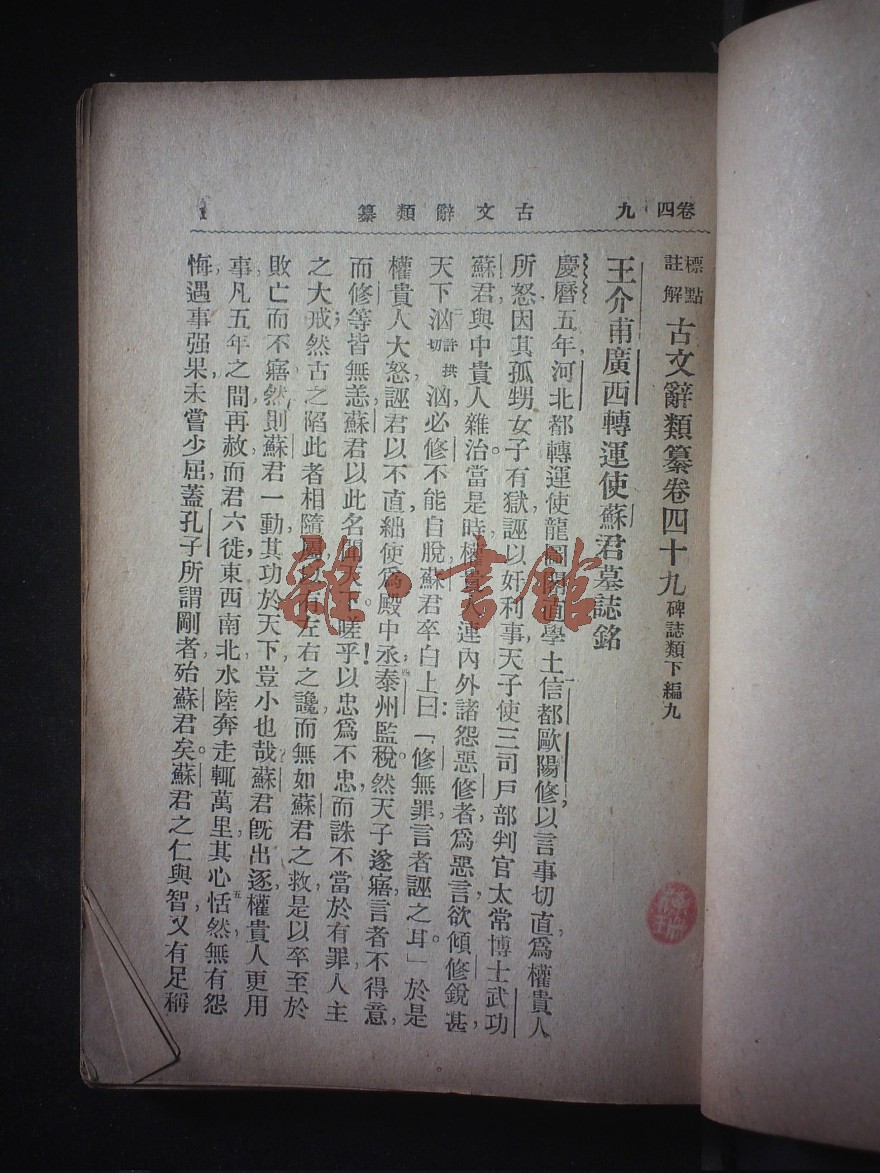 卷四九 古文辭類纂
標點註解 古文辭類纂卷四十九 碑誌類下編九
王介甫廣西轉運使蘇君墓誌銘
慶曆五年,河北都轉運使龍圖閣直學士信都歐陽修以言事切直,爲權貴人
所怒因其孤甥女子有獄,誣以奸利事,天子使三司戶部判官太常博士武功
蘇君與中貴人雜治。當是時,權貴人連內外諸怨惡修者,爲惡言,欲傾修,銳甚
天下洶許拱切洶,必修不能自脫,蘇君卒白上曰:「修無罪,言者誣之耳。」於是
權貴人大怒,誣君以不直,絀使爲殿中丞,泰州監稅。然天子遂寤,言者不得意,
而修等皆無恙,蘇君以此名聞天下。嗟乎!以忠爲不忠,而誅不當於有罪,人主
之大戒;然古之陷此者相隨屬以有左右之讒,而無如蘇君之救,是以卒至於
敗亡而不寤,然則蘇君一動,其功於天下豈小也哉?蘇君既出逐,權貴人更用
事,凡五年之間,再赦而君六徙,東西南北,水陸奔走,輒萬里,其心恬然,無有怨
悔,遇事强果,未嘗少屈,蓋孔子所謂剛者,殆蘇君矣。蘇君之仁與智,又有足稱
雜·書館